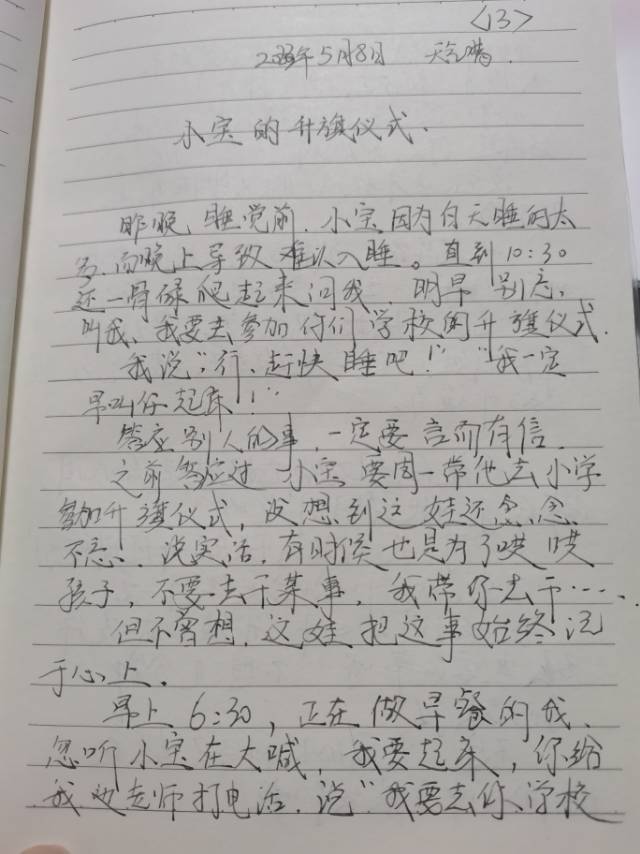 <13>
5月8日 天气晴.
小宝的升旗仪式.
昨晚,睡觉前,小宝因为白天睡的太
多,而晚上导致难以入睡。直到10:30
还一骨碌爬起来问我,明早别忘,
叫我、我要去参加你们学校的升旗仪式.
我说:"行,赶快睡吧!""我一定
早叫你起床!"
答应别人的事,一定要言而有信.
之前答应过小宝要周一带他去小学
参加升旗仪式,没想到这娃还念念
不忘.说实话,有时候也是为了哄哄
孩子,不要去干某事,我带你去干……
但不曾想,这娃把这事始终记
于心上.
早上6:30,正在做早餐的我、
忽听小宝在大喊,我要起床,你给
我老师打电话.说"我要去你学校